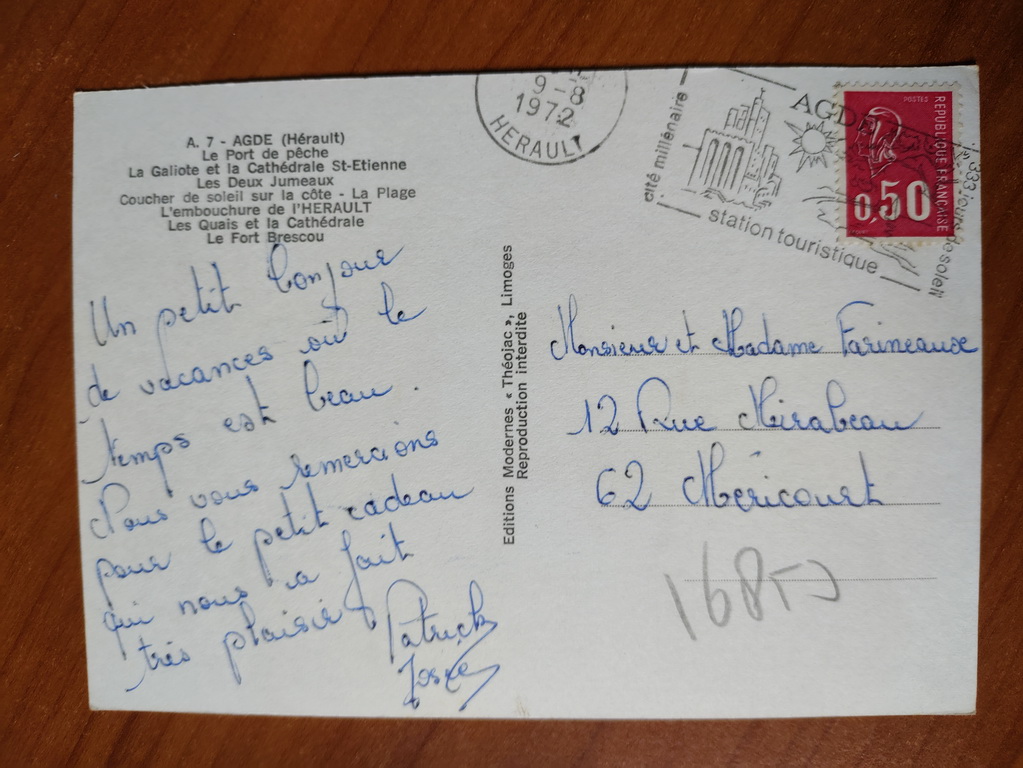 A. 7 - AGDE (Hérault)
Le Port de pêche
La Galiote et la Cathédrale St-Etienne
Les Deux Jumeaux
Coucher de soleil sur la côte - La Plage
L'embouchure de l'HERAULT
Les Quais et la Cathédrale
Le Fort Brescou
Un petit bonjour
de vacances où le
temps est beau.
Nous vous remercions
pour le petit cadeau
qui nous a fait
très plaisir
Patrick
Josée
Editions Modernes « Théojac », Limoges
Reproduction interdite
9-8
1972
HERAULT
cité millénaire
AGDE
station touristique
333 jours de soleil
POSTES
REPUBLIQUE FRANCAISE
0,50
Monsieur et Madame Farineaux
12 Rue Mirabeau
62 Méricourt